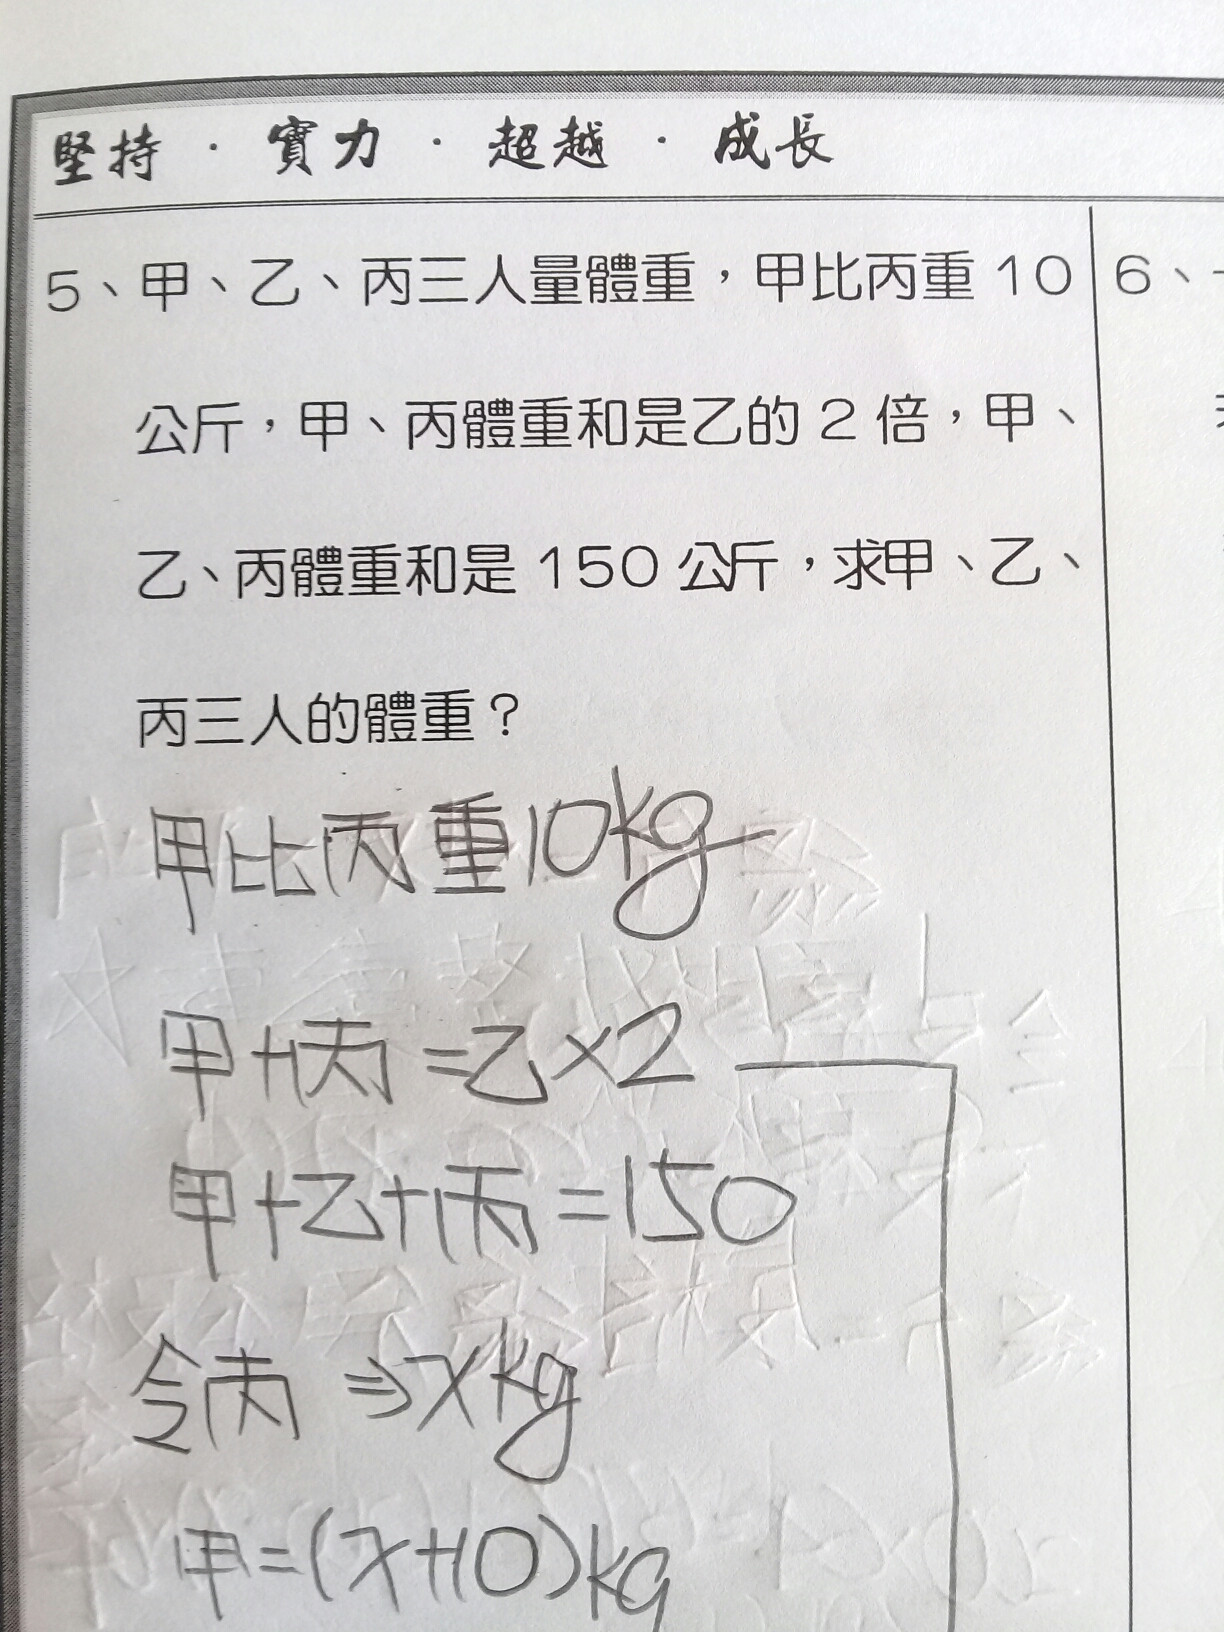 堅持・實力・超越・成長
5、甲、乙、丙三人量體重，甲比丙重10
公斤，甲、丙體重和是乙的2倍，甲、
乙、丙體重和是150公斤，求甲、乙、
丙三人的體重？
甲比丙重10kg
甲+丙=乙×2
甲+乙+丙=150
令丙⇒xkg
甲=(x+10)kg
6、